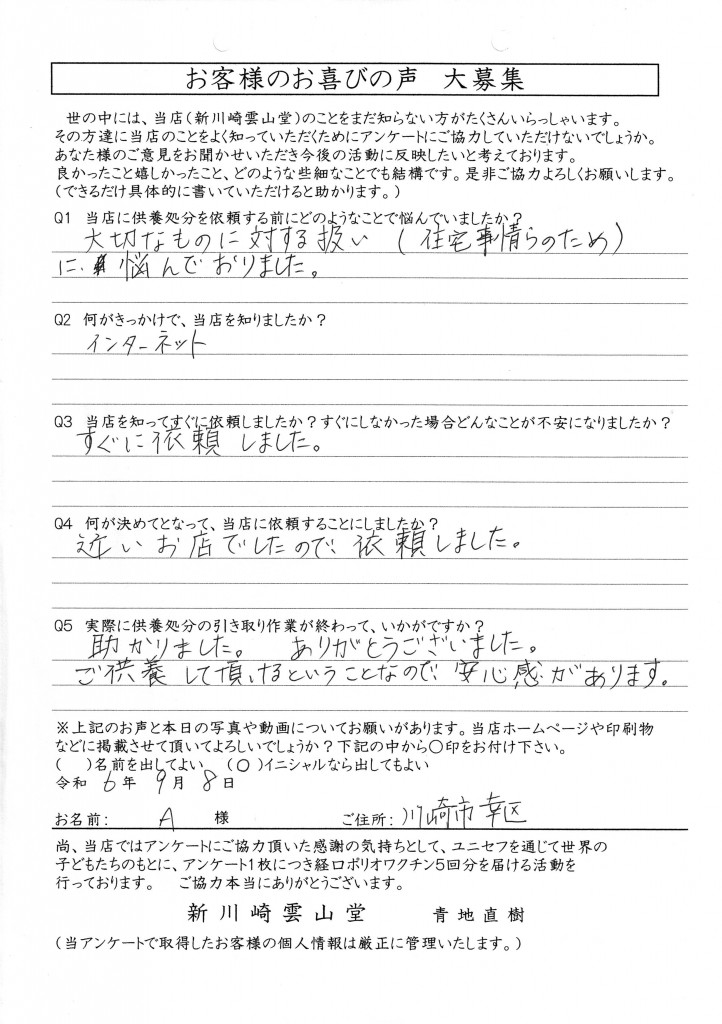 お客様のお喜びの声　大募集
世の中には、当店(新川崎雲山堂)のことをまだ知らない方がたくさんいらっしゃいます。
その方達に当店のことをよく知っていただくためにアンケートにご協力していただけないでしょうか。
あなた様のご意見をお聞かせいただき今後の活動に反映したいと考えております。
良かったこと嬉しかったこと、どのような些細なことでも結構です。是非ご協力よろしくお願いします。
(できるだけ具体的に書いていただけると助かります。)
Q1　当店に供養処分を依頼する前にどのようなことで悩んでいましたか？
大切なものに対する扱い(住宅事情らのため)
に、悩んでおりました。
Q2　何がきっかけで、当店を知りましたか？
インターネット
Q3　当店を知ってすぐに依頼しましたか？すぐにしなかった場合どんなことが不安になりましたか？
すぐに依頼しました。
Q4　何が決めてとなって、当店に依頼することにしましたか？
近いお店でしたので、依頼しました。
Q5　実際に供養処分の引き取り作業が終わって、いかがですか？
助かりました。　ありがとうございました。
ご供養して頂けるということなので、安心感があります。
※上記のお声と本日の写真や動画についてお願いがあります。当店ホームページや印刷物
などに掲載させて頂いてよろしいでしょうか？下記の中から○印をお付け下さい。
(　)名前を出してよい　(○)イニシャルなら出してもよい
令和 6年 9月 8日
お名前：　A　様　ご住所：川崎市幸区
尚、当店ではアンケートにご協力頂いた感謝の気持ちとして、ユニセフを通じて世界の
子どもたちのもとに、アンケート1枚につき経口ポリオワクチン5回分を届ける活動を
行っております。　ご協力本当にありがとうございます。
新川崎雲山堂　青地直樹
(当アンケートで取得したお客様の個人情報は厳正に管理いたします。)